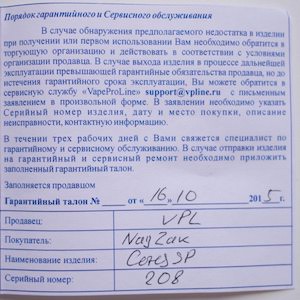 Порядок гарантийного и Сервисного обслуживания
В случае обнаружения предполагаемого недостатка в изделии
при получении или первом использовании Вам необходимо обратится в
торгующую организацию и действовать в соответствии с условиями
организации продавца. В случае выхода изделия в процессе дальнейшей
эксплуатации превышающей гарантийные обязательства продавца, но до
истечения гарантийного срока эксплуатации, Вы можете обратится в
сервисную службу «VapeProLine» support@vpline.ru с письменным
заявлением в произвольной форме. В заявлении необходимо указать
Серийный номер изделия, дату и место покупки, описание
неисправности, контактную информацию.
В течении трех рабочих дней с Вами свяжется специалист по
гарантийному и сервисному обслуживанию. В случае отправки изделия
на гарантийный и сервисный ремонт необходимо приложить
заполненный гарантийный талон.
Заполняется продавцом
Гарантийный талон № от «16» 10 2015 г.
Продавец: VPL
Покупатель: NagZak
Наименование изделия: SP
Серийный номер: 208